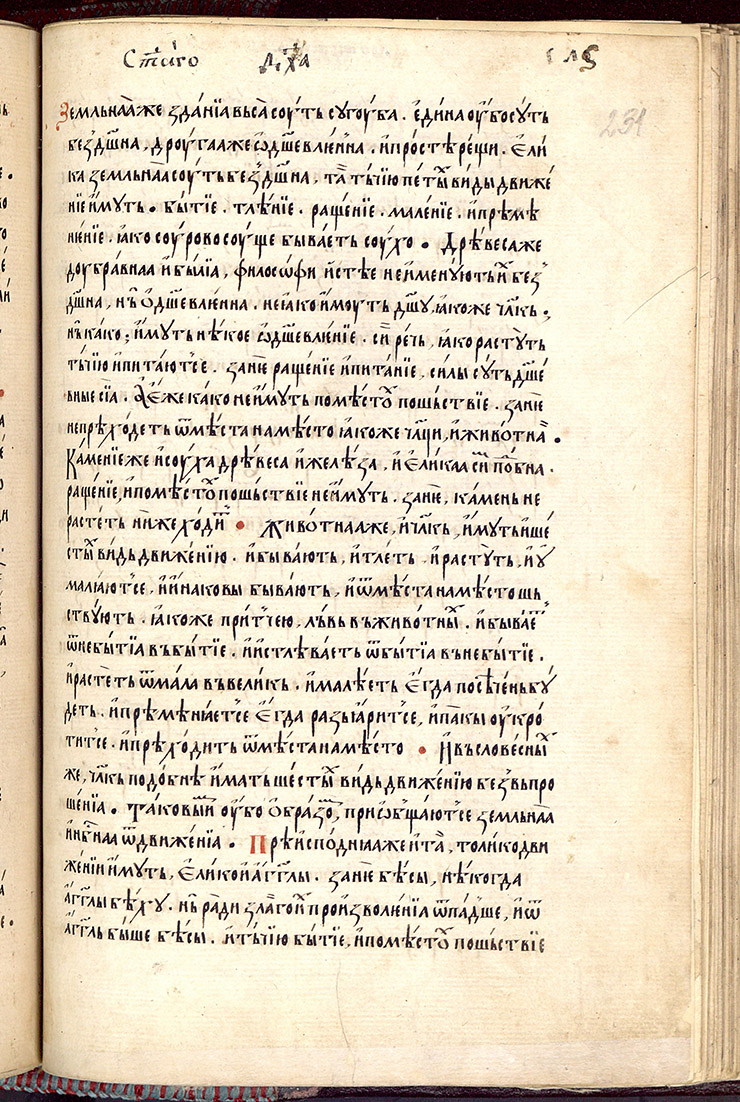 Ст҃аго дꙋ҃ха сл҃ѕ
231
Земльнаа же зда́нїа вьса̀ соу́ть сꙋгоу́ба . е҆ди́на оу҆́бо сꙋ́ть
без̾дш҃на , дроу́гаа же ѡ҆дш҃евлꙗ́нна . и҆про́стѣ рещѝ . Е҆ли́
ка земльна́а соу́ть без̾дш҃на , та̀ тъ́чїю пе́ты̏ ви́ды движе́
нїе и҆́мꙋть . бы́тїе . тлѣ́нїе . раще́нїе . мале́нїе . и҆прѣмѣ
не́нїе . ꙗ҆́ко соу́рово соу́ще быва́еть соу́хо . Дрѣ́веса же
доубра́внаа и҆ бы́лїа , філосѡ́фи и҆́стѣе не и҆менꙋ́ють и҆̀ без̾
дш҃на , нъ̀ ѻ҆дш҃евлꙗ́нна . не ꙗ҆́ко и҆́моуть дш҃ꙋ , ꙗ҆́коже чл҃кь ,
нъ̀ ка́ко ; и҆́мꙋть нѣ́кое ѡ҆дш҃евлꙗ́нїе . си̏ рѣчь , ꙗ҆́ко растꙋ́ть
тъ́чїю и҆пита́ют̾се . зане̏ раще́нїе и҆пита́нїе , си́лы сꙋ́ть дш҃е́
вные сїа̀ . А҆ е҆́же ка́ко не и҆́мꙋть по мѣ́стꙋ̏ поше́ствїе . зане̏
не прѣхо́деть ѿ мѣ́ста на мѣ́сто ꙗ҆́коже чл҃ци , и҆ живо́тна̏ .
Ка́менїе же и҆ соу́ха дрѣ́веса и҆ желѣ́за , и҆ е҆ли́каа си̏ по́бна .
раще́нїе , и҆по мѣ́стꙋ̏ поше́ствїе не и҆́мꙋть . зане̏ , ка́мень не
расте́ть нижѐ хо́ди̏ . Живо́тнаа же , и҆ чл҃кь , и҆́мꙋть и҆ ше́
сты̏ ви́дь движе́нїю . и҆быва́ють , и҆тле́ть . и҆растꙋ́ть , и҆ ꙋ҆
малꙗ́ют̾се , и҆ и҆на́ковы быва́ють , и҆ ѿ мѣ́ста на мѣ́сто шь
ствꙋ́ють . ꙗ҆́коже при́тчею , ль́вь вь живо́тны̏ . и҆быва́е̏
ѿ не бы́тїа вь бы́тїе . и҆ и҆стлѣва́еть ѿ бы́тїа вь не бы́тїе .
и҆расте́ть ѿ ма́ла вь вели́кь . и҆малѣ́еть е҆гда̀ посѣ́чень бꙋ́
деть . и҆прѣмѣнꙗ́ет̾се е҆гда̀ раз̾ꙗ҆ри́т̾се , и҆па́кы оу҆кро́
ти́т̾се . и҆прѣхо́дить ѿ мѣ́ста на мѣ́сто . И҆ вь слове́сны̏
же , чл҃кь подо́бнѣ и҆́мать ше́сты̏ ви́дь движе́нїю без̾ вьпро
ше́нїа . Таковы́м̾ оу҆́бо ѻ҆́бразо̏ , приѡ҆бща́ют̾се земльна́а
и҆нб҃наа ѿ движе́нїа . Прѣи҆спо́днꙗа же и҆ та̏ , толи́ко дви
же́нїи и҆́мꙋть , е҆ли́ко и҆ а҆́гг҃лы . зане̏ бѣ́сы , нѣ́когда
а҆́гг҃лы бѣ́хꙋ . нъ̀ ра́ди зла́го и҆̀ произволе́нїа ѿпа́дше , и҆ ѿ
а҆́гг҃ль бы́ше бѣ́сы . и҆тъ́чїю бы́тїе , и҆по мѣ́стꙋ̏ поше́ствїе